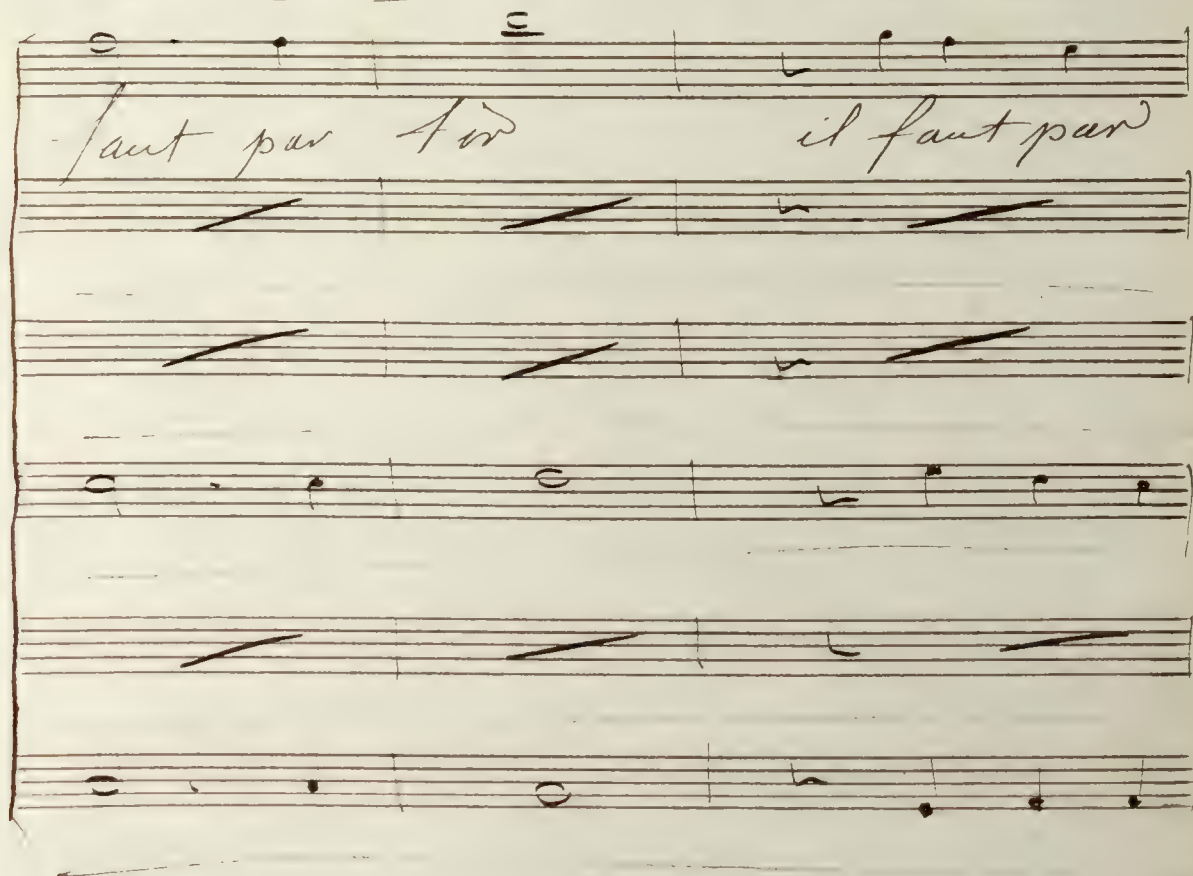 faut par tir il faut par